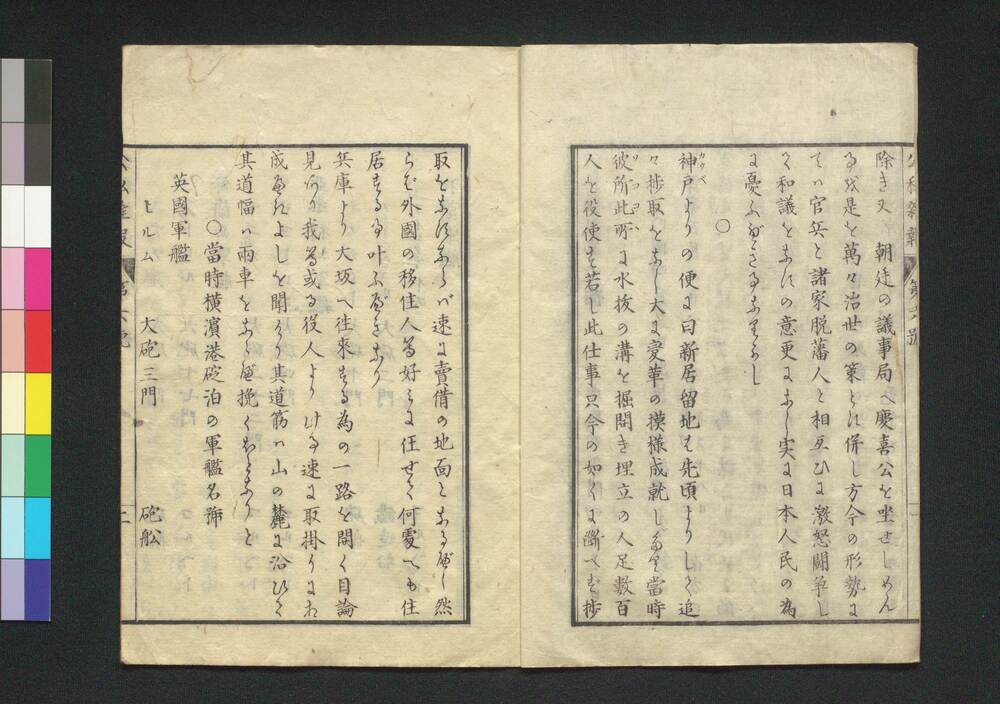 除き又 朝廷の議事局へ慶喜公を坐せしめん
る成是を萬々治世の策とに併し方今の形勢に
てハ官兵と諸家脱藩人と相互ひに激怒闘争し
く和議をなすの意更になし実に日本人民の為
に憂ふべきる
〇
神戸よりの便に曰新居留地も先頃よりしく追
カウベ
々捗取をなし大に変革の摸様成就し當時
彼所此所に水抜の溝を掘開き埋立の人足数百
人を役使す若し此仕事只今の如くに断へず捗
取をなすならバ速に賣借の地面となるべし然
らバ外國の移住人等好みに任せて何處へも住
居する叶ふべきなり
兵庫より大坂へ往來する為の一路を開く目論
見我等或る役人より速に取掛り
成るよしを聞けり其道筋ハ山の麓に沿ひく
其道幅ハ両車をならべ挽くなりと
〇當時横濱港碇泊の軍艦名号
英國軍艦
ヒルム 大砲三門 砲舩